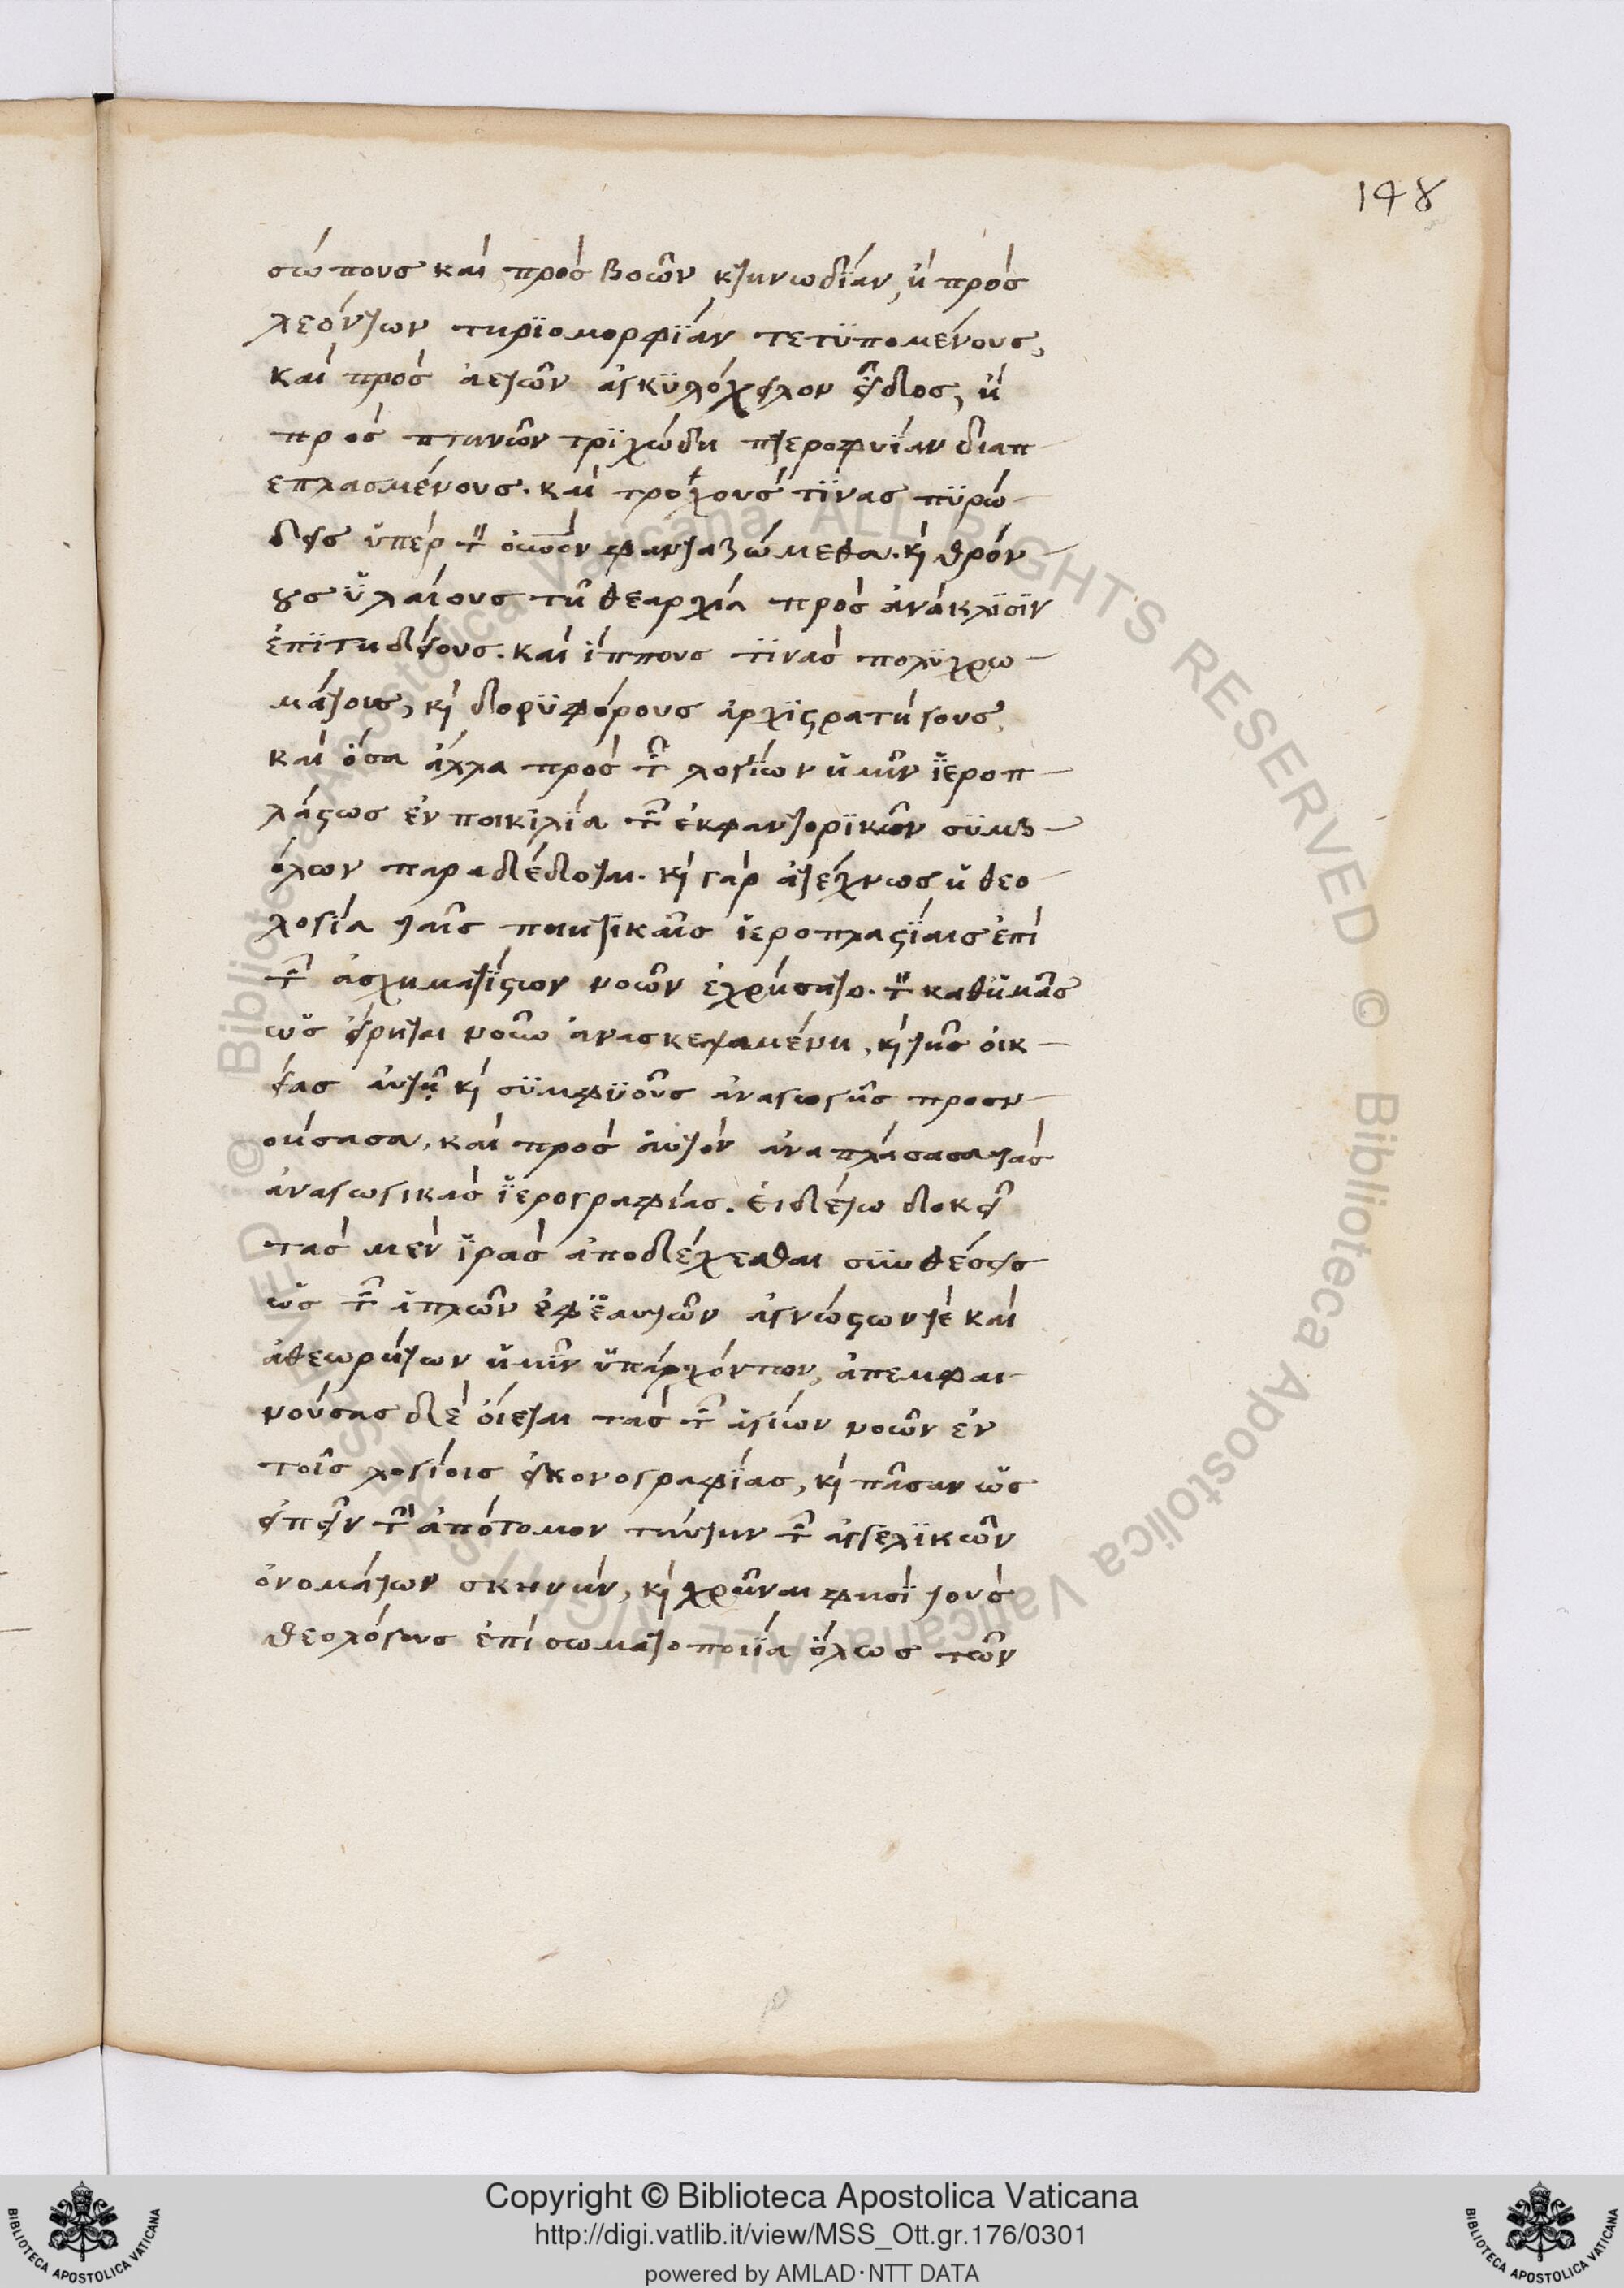 148
σώπους καὶ πρὸς βοῶν κτηνωδίαν, ἢ πρὸς
λεόντων τηριομορφίαν τετυπομένους,
καὶ πρὸς ἀετῶν ἀγκυλόχειλον εἶδος, ἢ
πρὸς πτηνῶν τριχώδη πτεροφυΐαν διαπ
επλασμένους. καὶ τροχοὺς τινας πυρώ
δεις ὑπὲρ τὸν οὐνὸν φανταζώμεθα. κὶ θρόν
ους ὑλαίους τῆ θεαρχία πρὸς ἀνάκλισιν
ἐπιτηδείους. καὶ ἵππους τινὰς πολυχρω
μάτους, κὶ δορυφόρους ἀρχιστρατήγους,
καὶ ὅσα ἄλλα πρὸς τῶν λογίων ἡμῖν ἱεροπ
λάστως ἐν ποικιλία τῶν ἐκφαντορικῶν συμβ
όλων παραδέδοται. κὶ γὰρ ἀτέχνως ἡ θεο
λογία ταῖς ποιητικαῖς ἱεροπλαστίαις ἐπὶ
τῶν ἀσχηματίστων νοῶν ἐχρήσατο. τὸν καθ ἡμᾶς
ὡς εἴρηται νοῶ ἀνασκεψαμένη, κὶ τῆς οἰκ
είας αὐτῆ κὶ συμφυοῦς ἀναγωγῆς προσν
οήσασα, καὶ πρὸς αὐτὸν ἀναπλάσασα τὰς
ἀναγωγικὰς ἱερογραφίας. εἰ δέ τω δοκεῖ
τὰς μὲν ἱρὰς ἀποδέχεσθαι συνθέσεις
ὡς τῶν ἁπλῶν ἐφ ἑαυτῶν ἀγνώστων τὲ καὶ
ἀθεωρήτων ἡμῖν ὑπαρχόντων, ἀπεμφαι
νούσας δὲ οἴεται τὰς τῶν ἁγίων νοῶν ἐν
τοῖς λογίοις εἰκονογραφίας, κὶ πᾶσαν ὡς
εἰπεῖν τὴν ἀπότομον ταύτην τῶν ἀγγελικῶν
ὀνομάτων σκηνὴν, κὶ χρῆναι φησὶ τοὺς
θεολόγους ἐπὶ σωματοποιΐα ὅλως τῶν
Copyright © Biblioteca Apostolica Vaticana
http://digi.vatlib.it/view/MSS_Ott.gr.176/0301
powered by AMLAD·NTT DATA